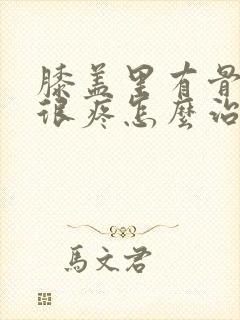 膝盖里有骨
很疼怎麼治
馬文君